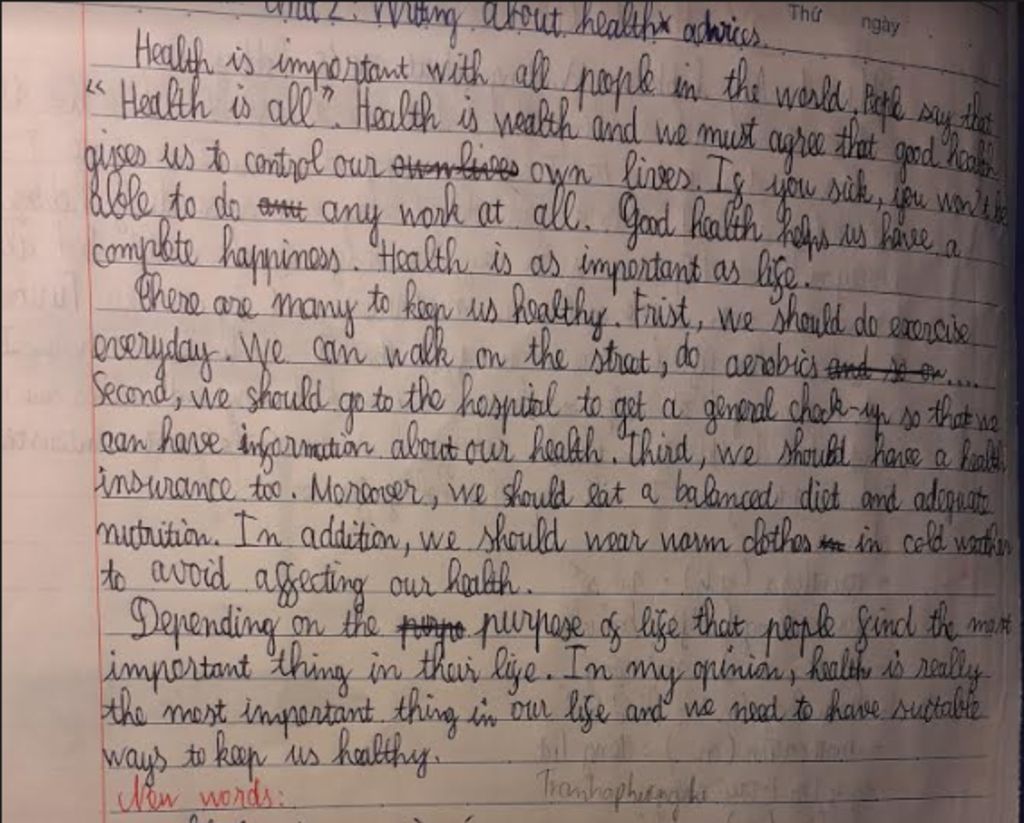 Unit 2: Writing about health advices.
Thứ ngày
Health is important with all people in the world. People say that
" Health is all". Health is wealth and we must agree that good health
gives us to control our own lives own lives. If you sick, you won't be
able to do any work at all. Good health helps us have a
complete happiness. Health is as important as life.
There are many to keep us healthy. Frist, we should do exercise
everyday. We can walk on the street, do aerobics and so on....
Second, we should go to the hospital to get a general check-up so that we
can have information about our health. Third, we should have a health
insurance too. Moreover, we should eat a balanced diet and adequate
nutrition. In addition, we should wear warm clothes in cold weather
to avoid affecting our health.
Depending on the purpose of life that people find the most
important thing in their life. In my opinion, health is really
the most important thing in our life and we need to have suitable
ways to keep us healthy.
New words: